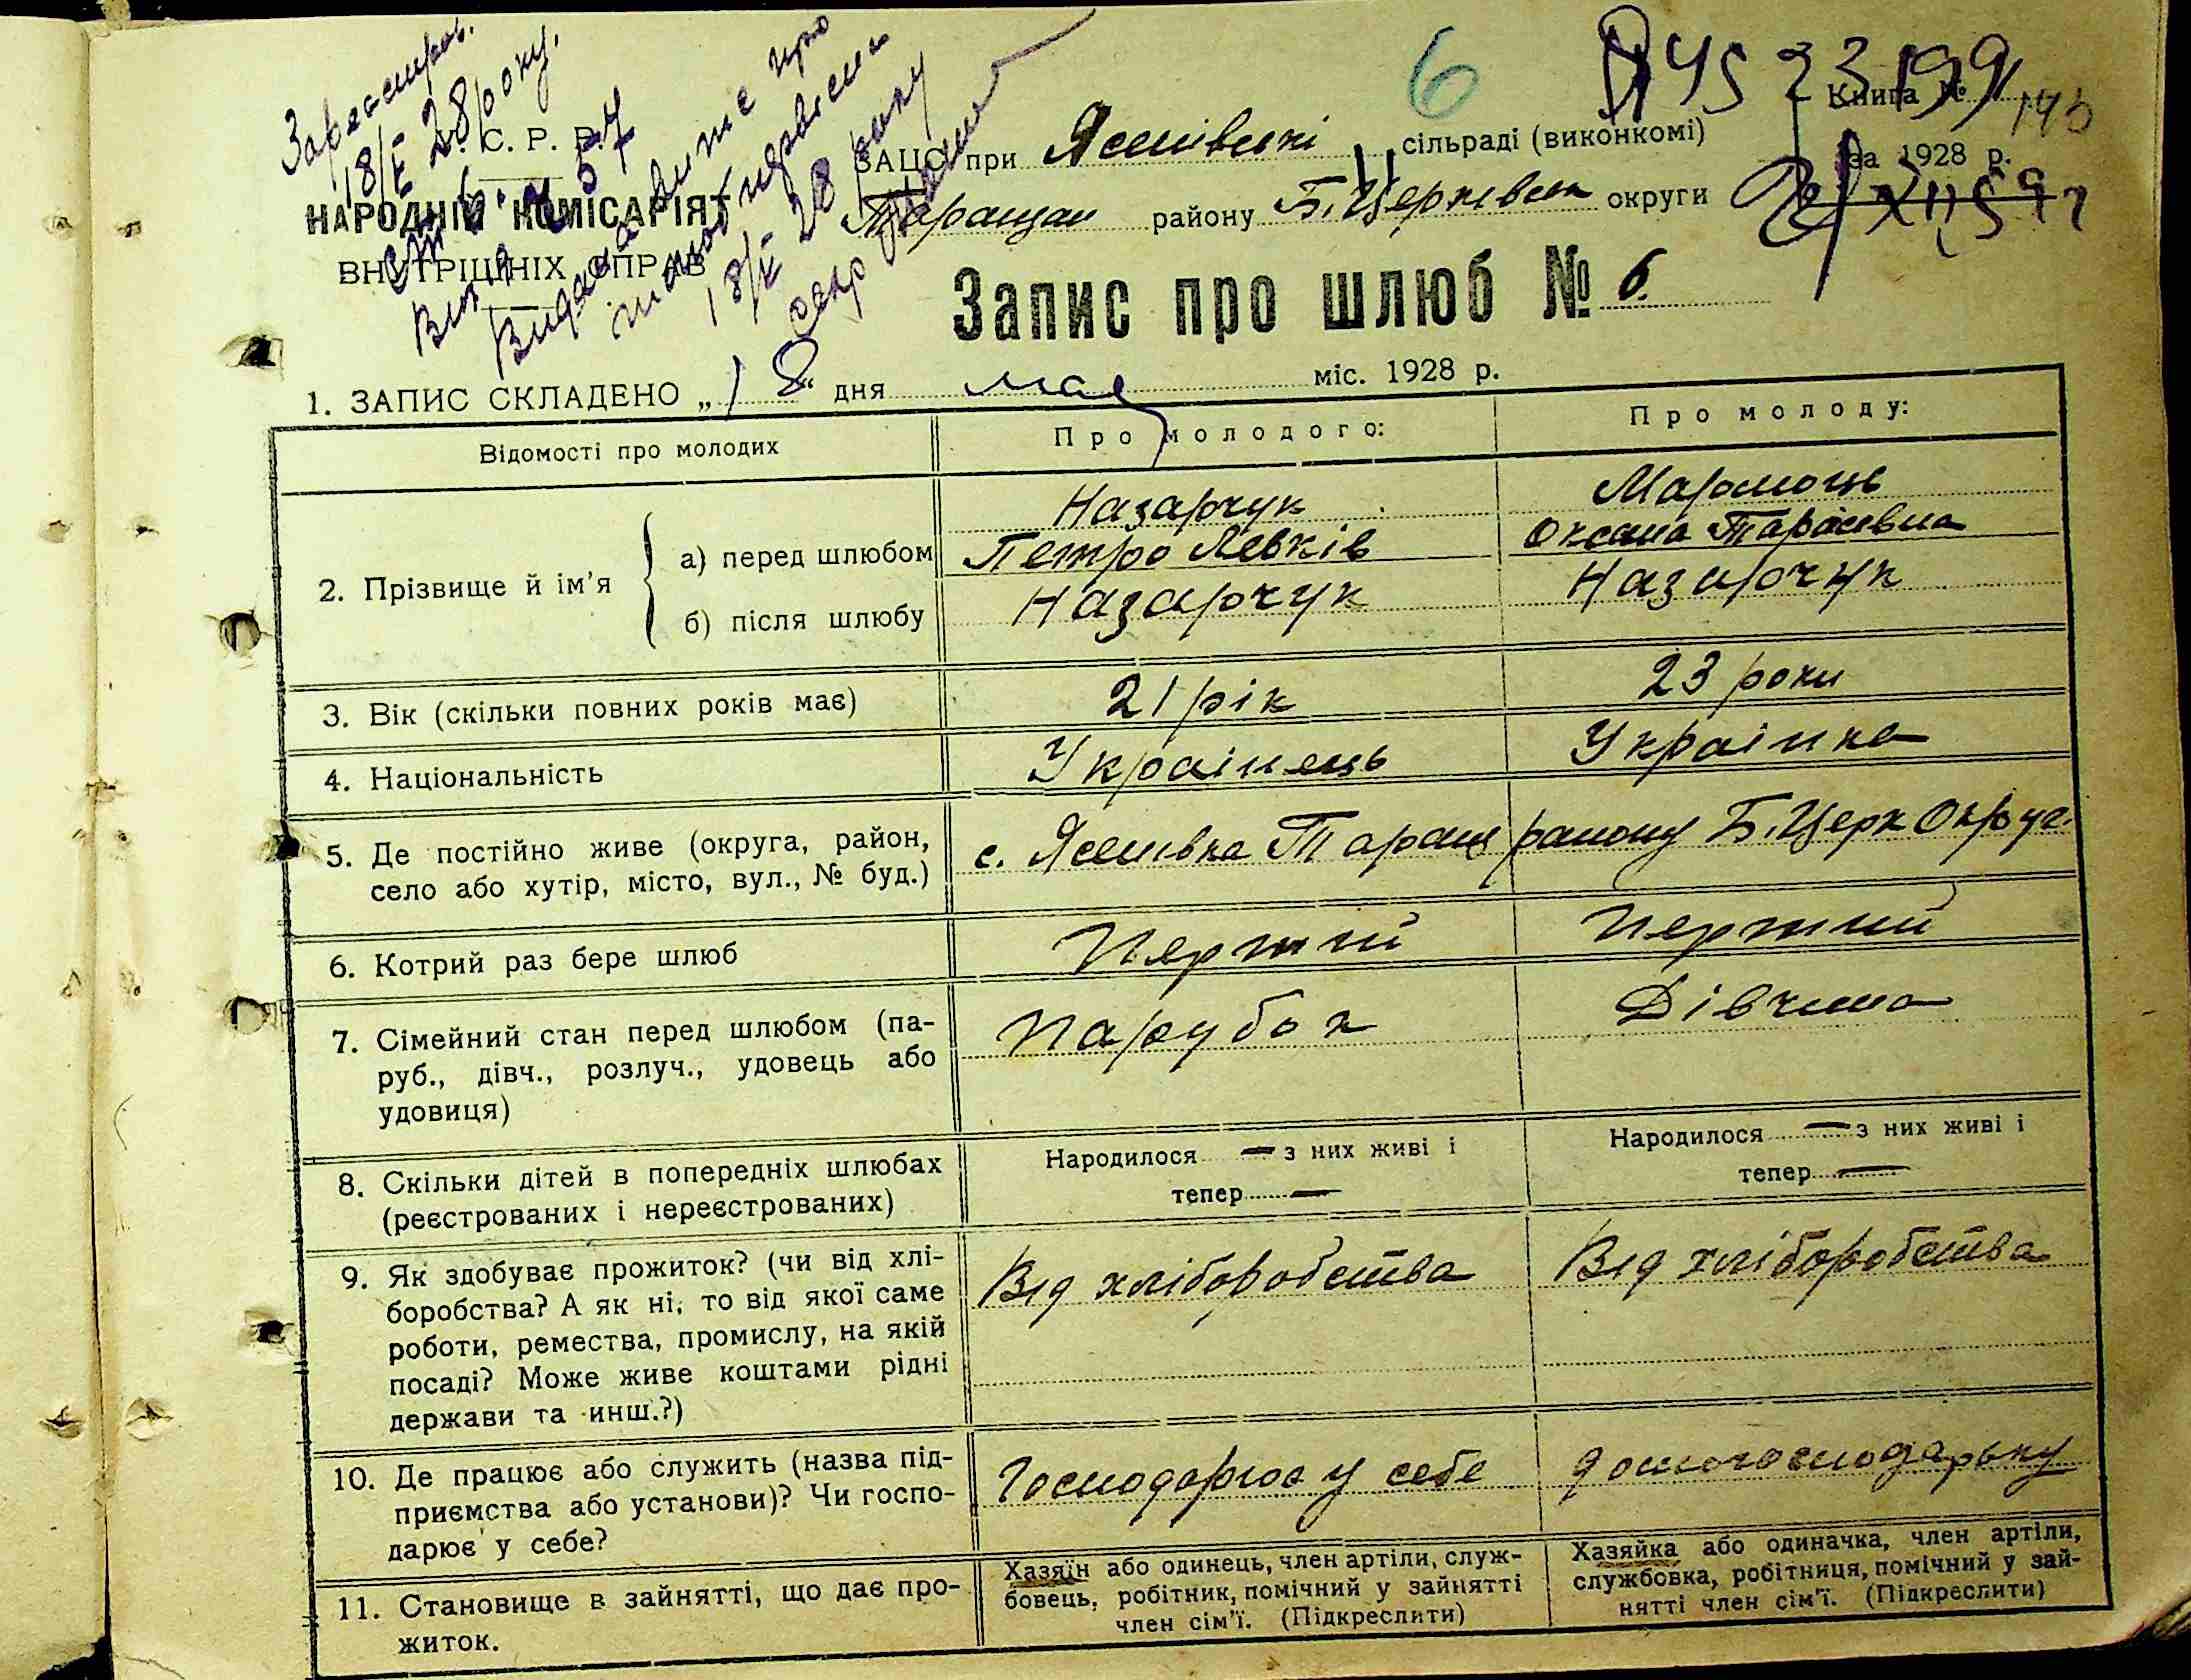 Зареєстров.
18/V 28 року.
6
ЗАЦС при Ясенівській сільраді (виконкомі)
Книга №
С. Р. Р.
за 1928 р.
НАРОДНІЙ КОМІСАРІЯТ
Таращан району Б.Церківськ округи
ВНУТРІШНІХ СПРАВ
18/V 28 року
Запис про шлюб № 6.
1. ЗАПИС СКЛАДЕНО „18“ дня мая міс. 1928 р.
Відомості про молодих
Про молодого:
Про молоду:
2. Прізвище й ім'я
а) перед шлюбом
Назарчук
Петро Левків
Оксана Тарасівна
б) після шлюбу
Назарчук
Назарчук
3. Вік (скільки повних років має)
21 рік
23 роки
4. Національність
Українець
Українка
5. Де постійно живе (округа, район,
село або хутір, місто, вул., № буд.)
с. Ясенівка Таращ району Б.Церк Округ.
6. Котрий раз бере шлюб
Перший
Перший
7. Сімейний стан перед шлюбом (па-
руб., дівч., розлуч., удовець або
удовиця)
Парубок
Дівчина
8. Скільки дітей в попередніх шлюбах
(реєстрованих і нереєстрованих)
Народилося — з них живі і
тепер —
Народилося — з них живі і
тепер —
9. Як здобуває прожиток? (чи від хлі-
боробства? А як ні, то від якої саме
роботи, ремества, промислу, на якій
посаді? Може живе коштами рідні
держави та инш.?)
Від хліборобства
Від хліборобства
10. Де працює або служить (назва під-
приємства або установи)? Чи госпо-
дарює у себе?
Господарює у себе
11. Становище в зайнятті, що дає про-
житок.
Хазяїн або одинець, член артіли, служ-
бовець, робітник, помічний у зайнятті
член сім'ї. (Підкреслити)
Хазяйка або одиначка, член артіли,
службовка, робітниця, помічний у зай-
нятті член сім'ї. (Підкреслити)